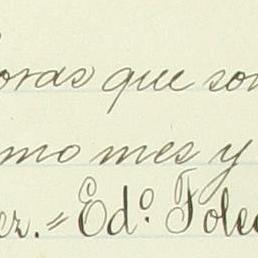 oras que son
mo mes y
ez.=Ed.º Tole